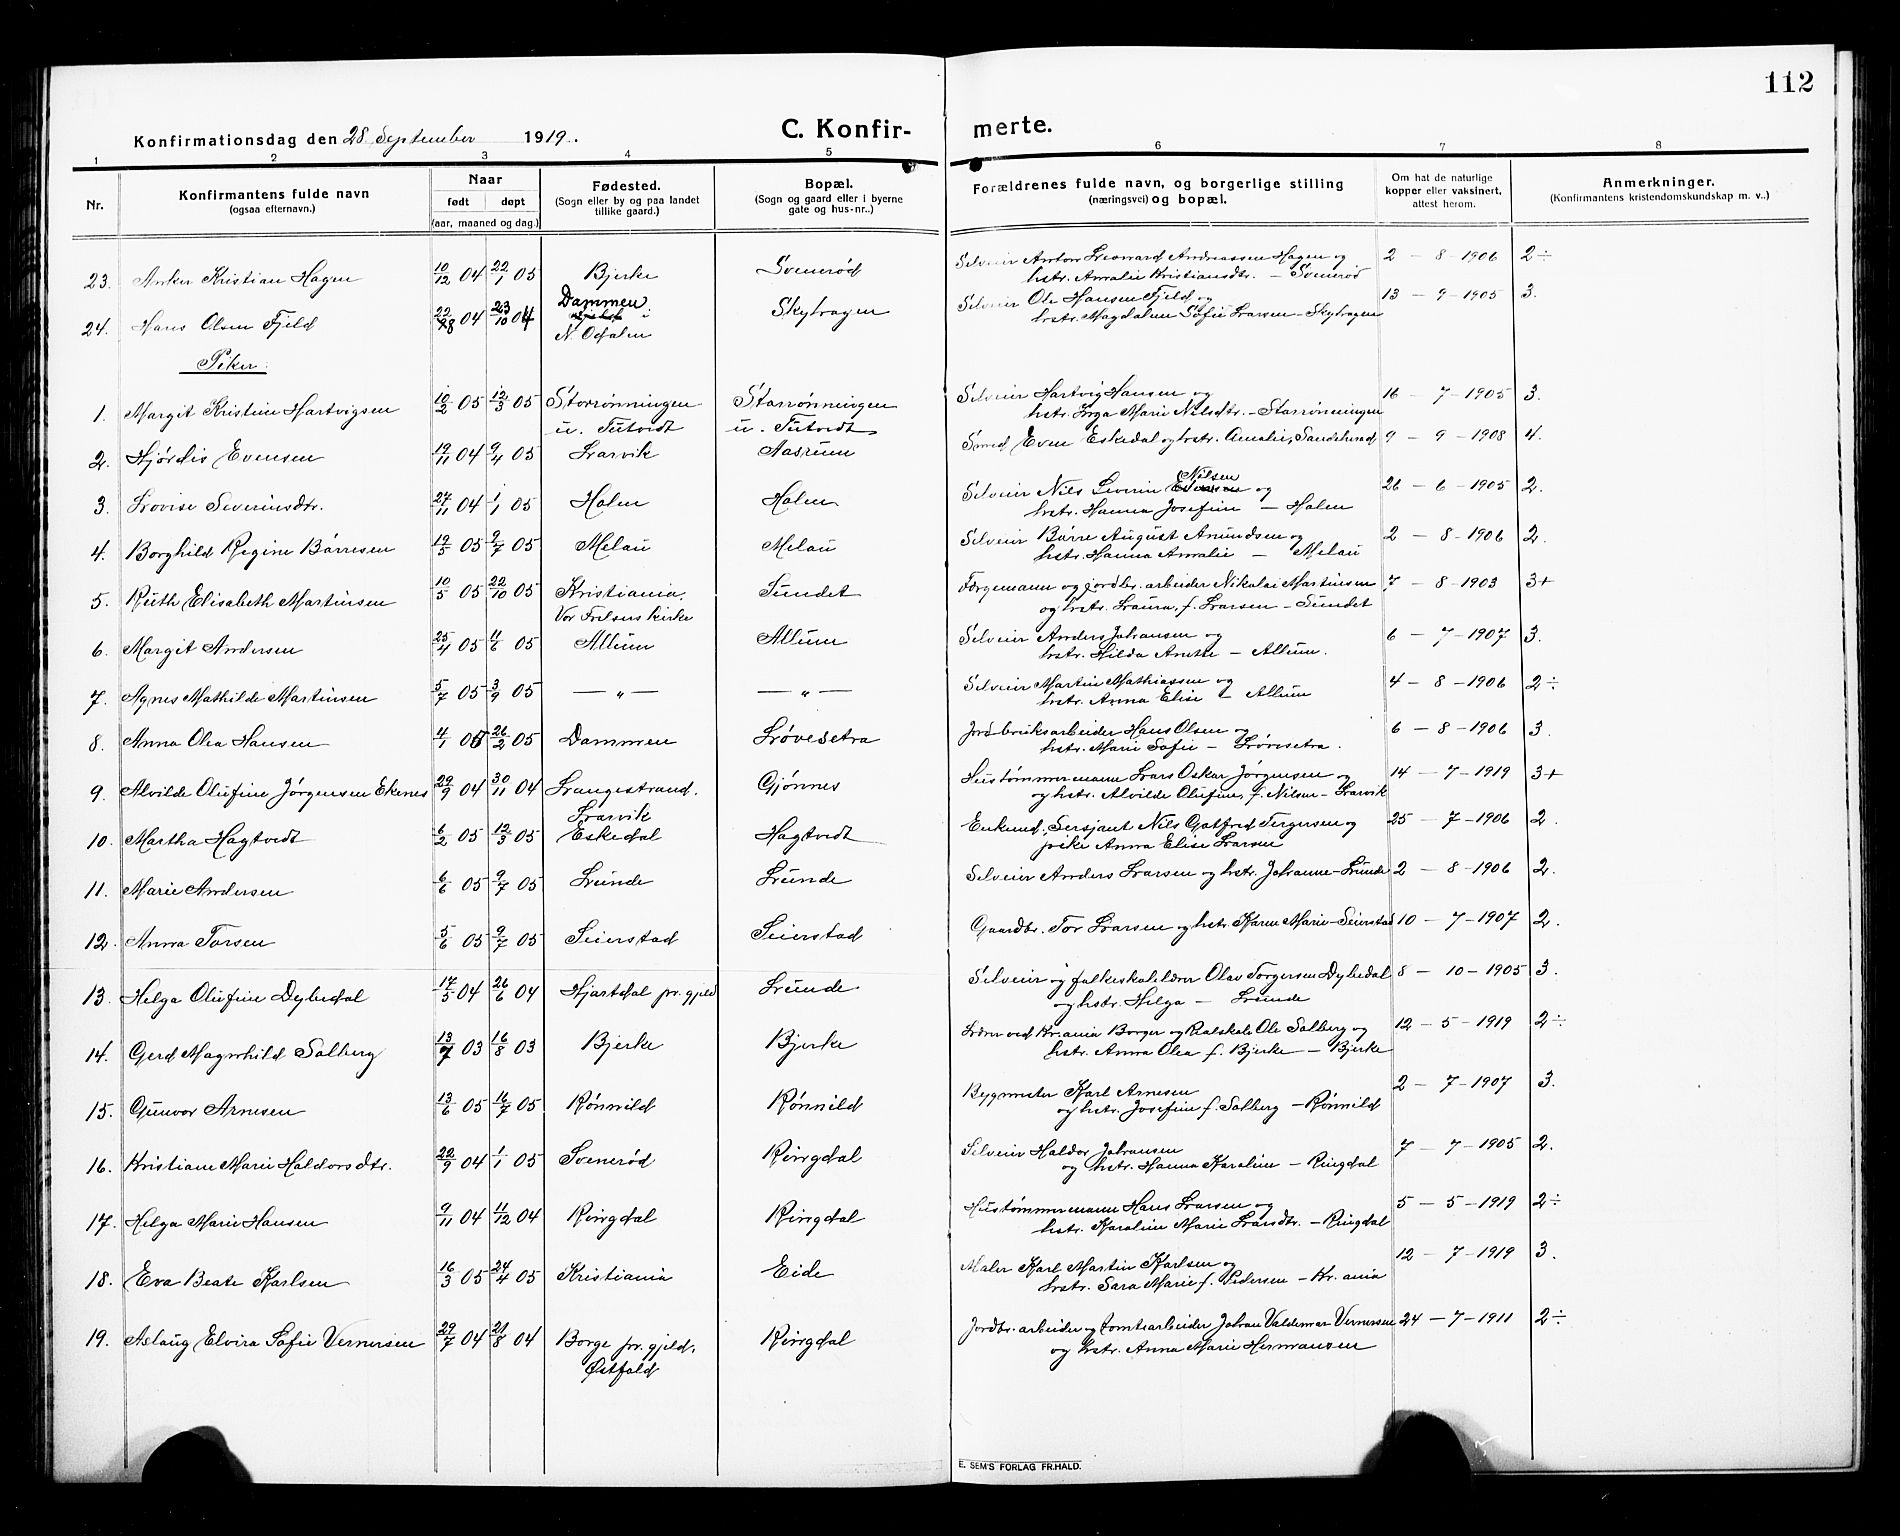 112
Konfirmationsdag den 28 September 1919.
C. Konfir- merte.
1 2 3 4 5 6 7 8
Nr.
Konfirmantens fulde navn
(ogsaa efternavn.)
Naar
født døpt
(aar, maaned og dag.)
Fødested.
(Sogn eller by og paa landet
tillike gaard.)
Bopæl.
(Sogn og gaard eller i byerne
gate og hus-nr..)
Forældrenes fulde navn, og borgerlige stilling
(næringsvei) og bopæl.
Om hat de naturlige
kopper eller vaksinert,
attest herom.
Anmerkninger.
(Konfirmantens kristendomskundskap m. v..)
23. Anker Kristian Hagen 10/12 04 22/1 05 Bjerke Svenerød Selveier Anton Leonard Andreassen Hagen og 2 - 8 - 1906 2÷
hstr. Amalie Kristiansdtr. - Svenerød
24. Hans Olsen Fjeld 22/8 04 23/10 04 Dammen i Skytragen Selveier Ole Hansen Fjeld og 13 - 9 - 1905 3.
N. Odalen hstr. Magdalene Sofie Larsen - Skytragen
Piker:
1. Margit Kristine Hartvigsen 10/2 05 12/3 05 Storrønningen Storrønningen Selveier Hartvig Hansen og 16 - 7 - 1905 3.
u. Tutvedt u. Tutvedt hstr. Inga Marie Nilsdtr. - Storrønningen
2. Hjørdis Evensen 19/11 04 9/4 05 Larvik Aasrum Smed Even Eskedal og hstr. Amalie, Sandehered 9 - 9 - 1908 4.
3. Lovise Severinsdtr. 27/11 04 1/1 05 Holen Holen Selveier Nils Severin Nilsen og 26 - 6 - 1905 2.
hstr. Hanna Josefine - Holen
4. Borghild Regine Børresen 19/5 05 9/7 05 Melau Melau Selveier Børre August Amundsen og 2 - 8 - 1906 2.
hstr. Hanna Amalie - Melau
5. Ruth Elisabeth Martinsen 10/5 05 22/10 05 Kristiania, Sundet Færgemann og jordbr. arbeider Nikolai Martinsen 7 - 8 - 1903 3+
Vor Frelsers kirke og hstr. Laura, f. Larsen - Sundet
6. Margit Andersen 25/4 05 11/6 05 Allum Allum Selveier Anders Johansen og 6 - 7 - 1907 3.
hstr. Hilda Anette - Allum.
7. Agnes Mathilde Martinsen 5/7 05 3/9 05 — „ — — „ — Selveier Martin Mathiassen og 4 - 8 - 1906 2÷
hstr. Anna Elise - Allum
8. Anna Olea Hansen 4/1 05 26/2 05 Dammen Løvesetra Jordbruksarbeider Hans Olsen og 6 - 8 - 1906 3.
hstr. Marie Sofie - Løvesetra.
9. Alvilde Olufine Jørgensen Ekenes 29/9 04 30/11 04 Langestrand. Gjønnes Hustømmermann Lars Oskar Jørgensen og 14 - 7 - 1919 3+
Larvik og hstr. Alvilde Olufine, f. Nilsen - Larvik
10. Martha Hagtvedt 6/2 05 12/3 05 Eskedal Hagtvedt Enkemd., Sersjant Nils Gotfred Tergersen og 25 - 7 - 1906 2.
pike Anna Elise Larsen
11. Marie Andersen 6/6 05 9/7 05 Lunde Lunde Selveier Anders Larsen og hstr. Johanne - Lunde 2 - 8 - 1906 2.
12. Anna Torsen 5/6 05 9/7 05 Seierstad Seierstad Gaardbr. Tor Larsen og hstr. Karen Marie - Seierstad 10 - 7 - 1907 2.
13. Helga Olufine Dybedal 17/5 04 26/6 04 Hjartdal pr. gjeld Lunde Selveier og folkeskolelærer Olav Torgersen Dybedal 8 - 10 - 1905 3.
og hstr. Helga - Lunde
14. Gerd Magnhild Solberg 13/7 03 16/8 03 Bjerke Bjerke Lærer ved Kr.ania Borger og Realskole Ole Solberg og 12 - 5 - 1919 2÷
hstr. Anna Olea f. Bjerke - Bjerke
15. Gunvor Arnesen 13/6 05 16/7 05 Rønnild Rønnild Bygmester Karl Arnesen 2 - 7 - 1907 3.
og hstr. Josefine f. Solberg - Rønnild
16. Kristiane Marie Haldorsdtr. 22/9 04 1/1 05 Svenerød Ringdal Selveier Haldor Johansen 7 - 7 - 1905 2.
og hstr. Hanna Karoline - Ringdal
17. Helga Marie Hansen 9/11 04 11/12 04 Ringdal Ringdal Hustømmermann Hans Larsen og 5 - 5 - 1919 2÷
hstr. Karoline Marie Larsdtr. - Ringdal
18. Eva Beate Karlsen 16/3 05 24/4 05 Kristiania Eide Maler Karl Martin Karlsen og 12 - 7 - 1919 3.
hstr. Sara Marie f. Pedersen - Kr.ania
19. Aslaug Elvira Sofie Vernersen 29/7 04 21/8 04 Borge pr. gjeld, Ringdal Jordbr. arbeider og tomtearbeider Johan Valdemar Vernersen 24 - 7 - 1911 2÷
Østfold og hstr. Anna Marie Hermansen
E. SEM'S FORLAG FR.HALD.